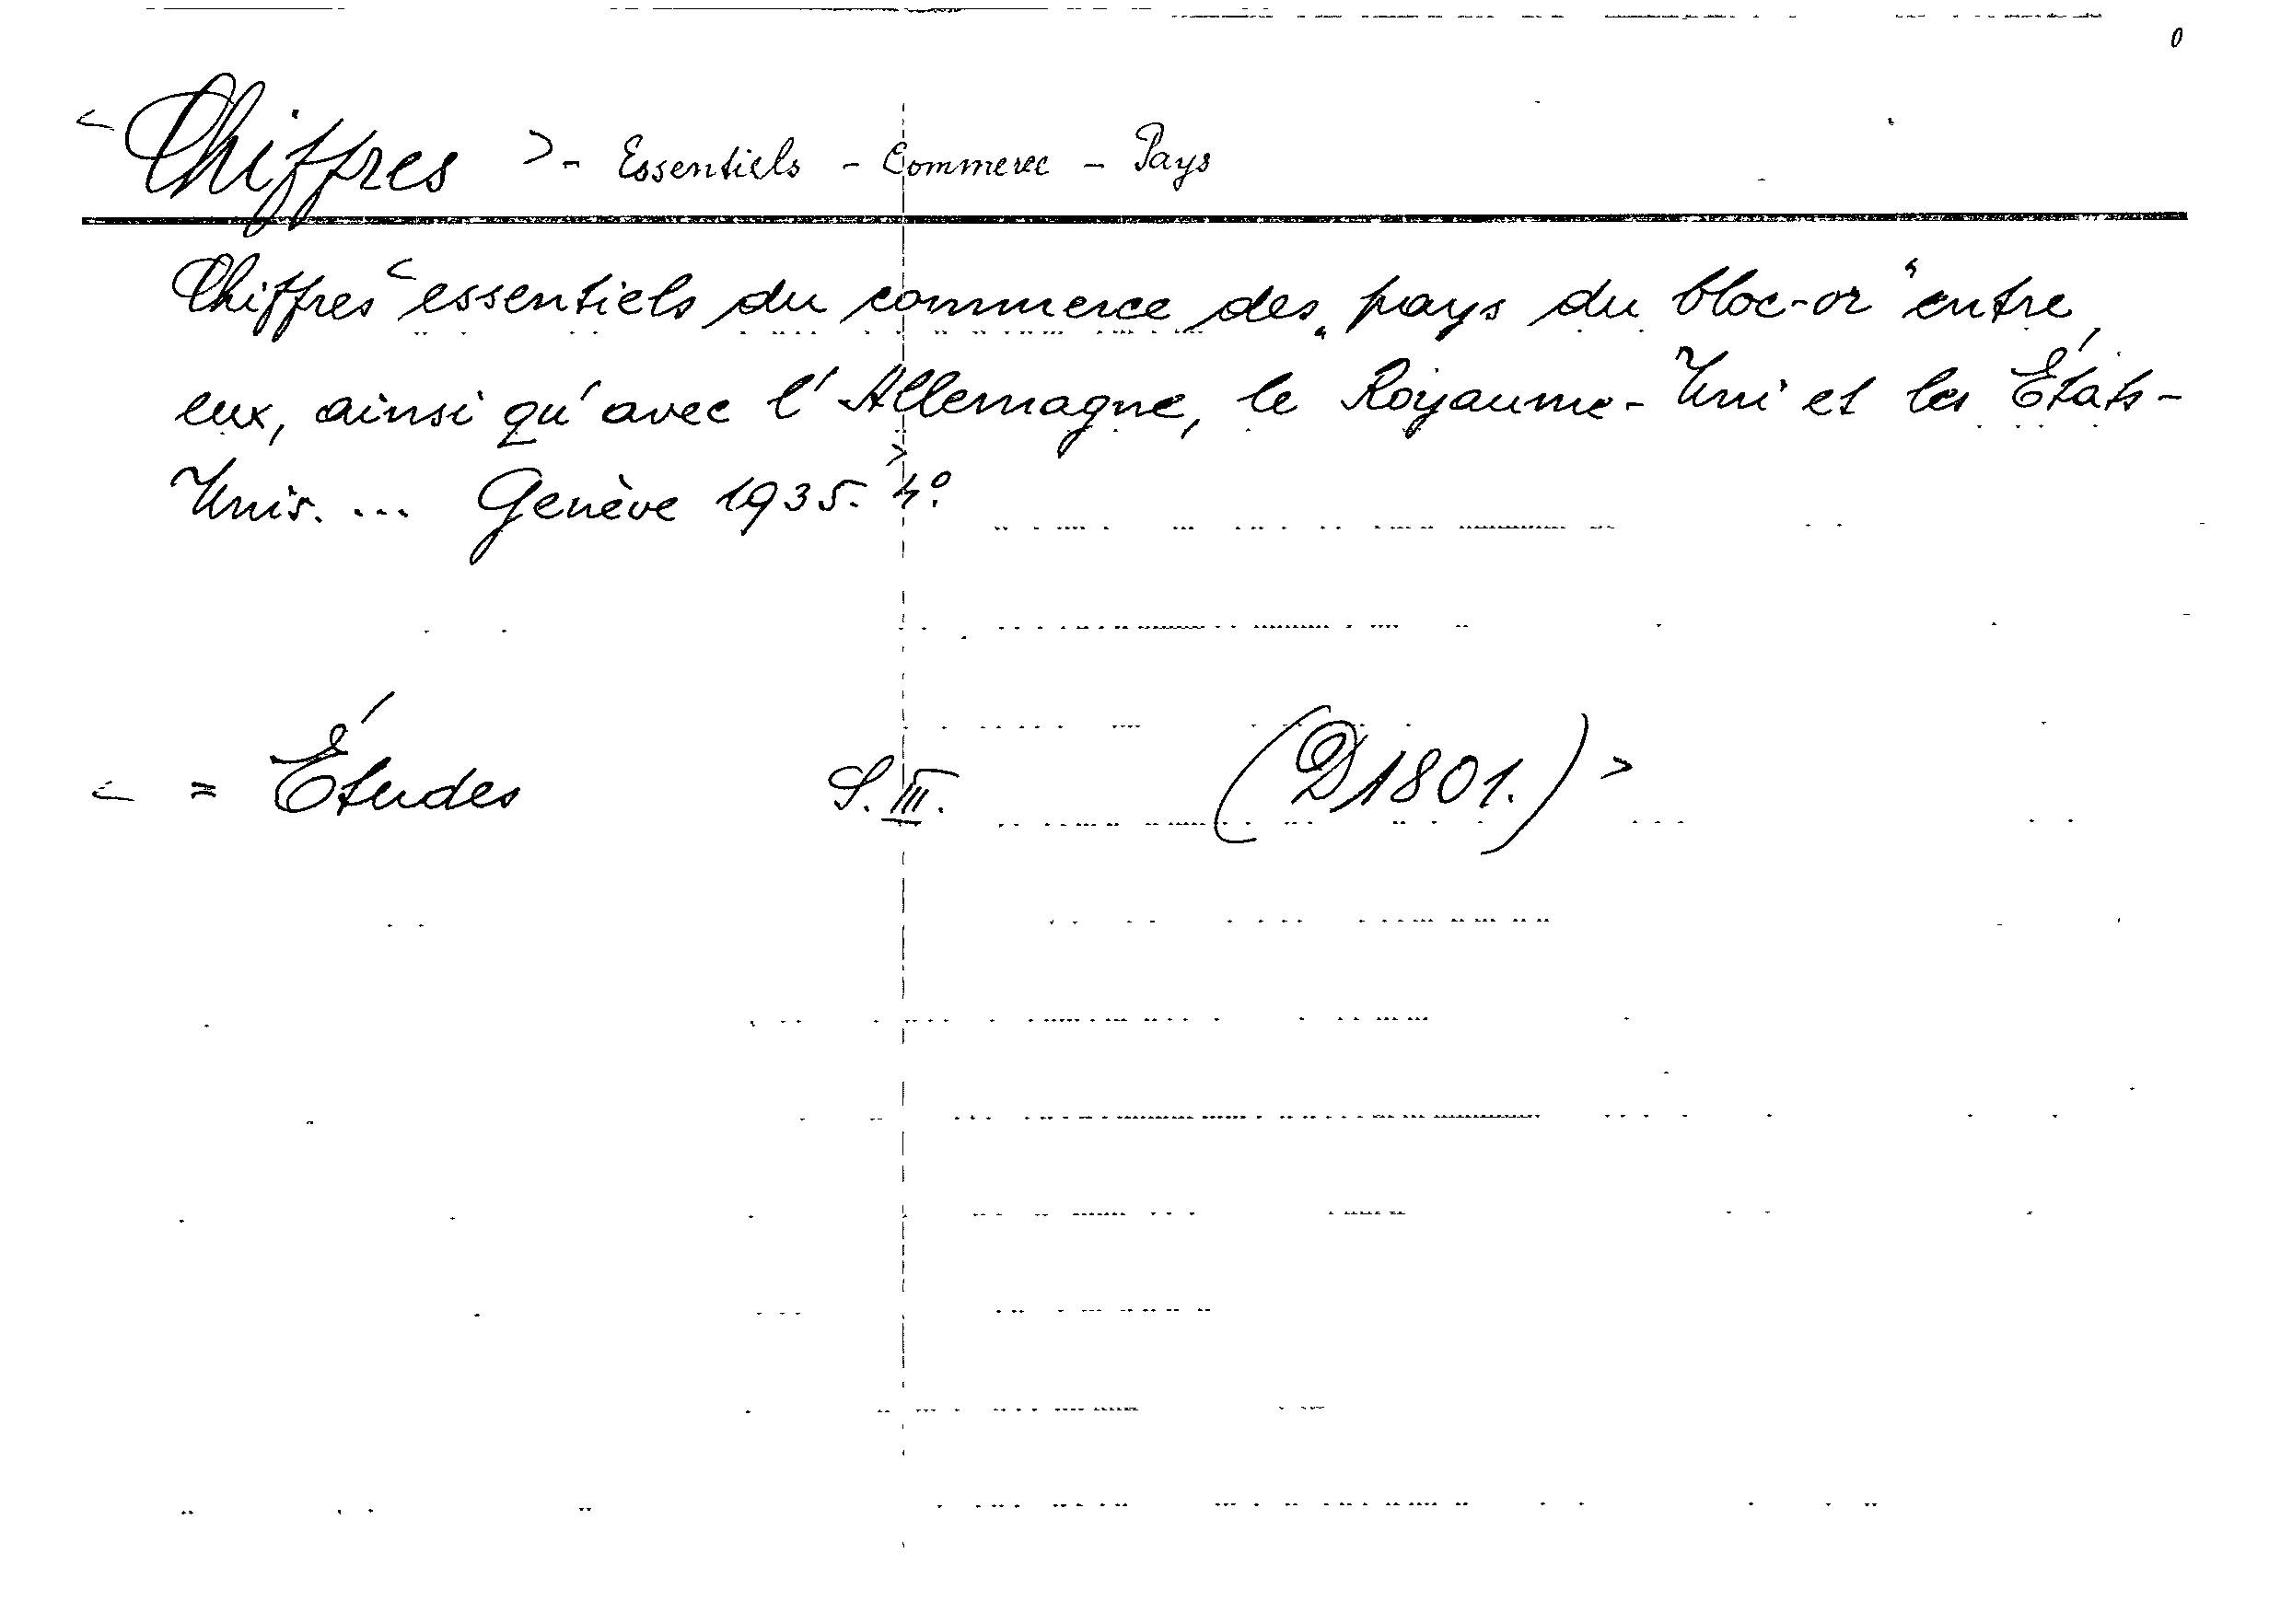 0
< Chiffres > - Essentiels - Commerce - Pays
Chiffres < essentiels du commerce des „pays du bloc-or“ entre
eux, ainsi qu'avec l'Allemagne, le Royaume-Uni et les États-
Unis. ... Genève 1935. > 4°.
< = Études S. III. (D 1801.) >